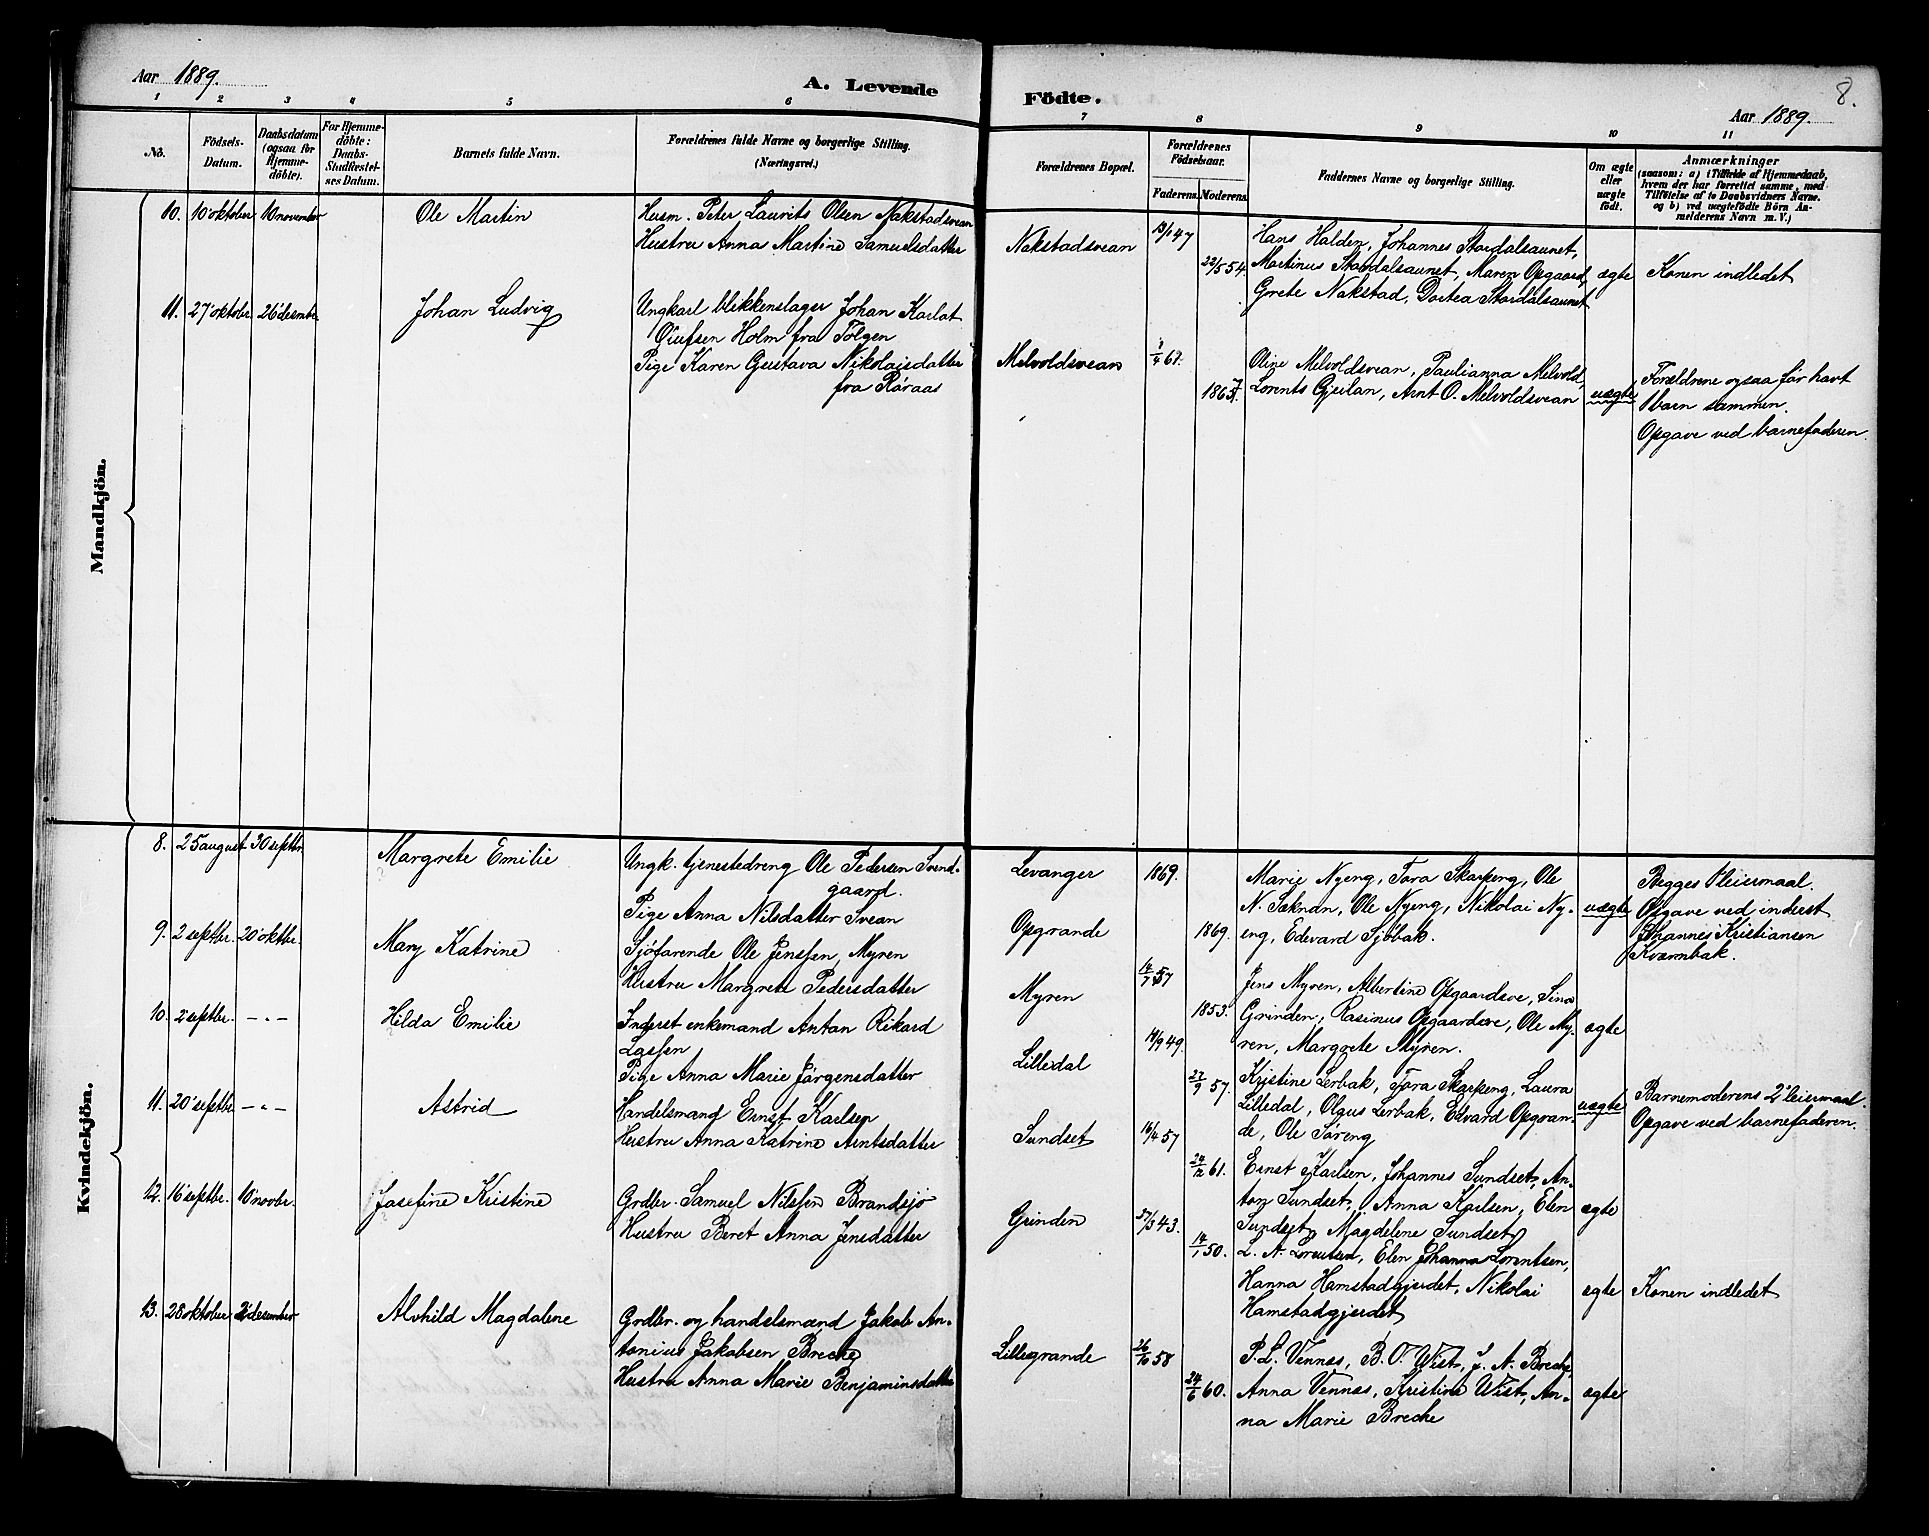 Aar 1889.
A. Levende Födte.
8.
Aar 1889.
1 2 3 4 5 6 7 8 9 10 11
No.
Födsels-
Datum.
Daabsdatum
(ogsaa for
Hjemme-
döbte).
For Hjemme-
döbte:
Daabs-
Stadfæstel-
ses Datum.
Barnets fulde Navn.
Forældrenes fulde Navne og borgerlige Stilling.
(Næringsvei.)
Forældrenes Bopæl.
Forældrenes
Födselsaar.
Faderens. Moderens.
Faddernes Navne og borgerlige Stilling.
Om ægte
eller
uægte
födt.
Anmærkninger
(saasom: a) i Tilfælde af Hjemmedaab,
hvem der har forrettet samme, med
Tilföielse af to Daabsvidners Navne.
og b) ved uægtefödte Börn An-
melderens Navn m. V.)
Mandkjön.
10. 10 oktober 10 november Ole Martin
Husm. Peter Laurits Olsen Nakstadsvean
Hustru Anna Martine Samuelsdatter
Nakstadsvean
47
22/5 54.
Hans Halden, Johannes Stordalsaunet,
Martinus Stordalsaunet, Maren Opgaard,
Grete Nakstad, Dortea Stordalsaunet
ægte
Konen indledet
11. 27' oktobr. 26' desembr. Johan Ludvig
Ungkarl blikkenslager Johan Karlat
Olufsen Holm fra Tolgen
Pige Karen Gustava Nikolaisdatter
fra Røraas
Melvoldsvean
67.
186
Oline Melvoldsvean, Paulianna Melvold,
Lorents Gjeilan, Arnt O. Melvoldsvean
uægte
Forældrene ogsaa før havt
1 barn sammen.
Opgave ved barnefaderen.
Kvindekjön.
8. 25 august 30 septbr. Margrete Emilie
Ungk. tjenestedreng Ole Pedersen Svend-
gaard.
Pige Anna Nilsdatter Svean
Levanger
Opgrande
1869.
1869.
Marie Nyeng, Tora Skarpeng, Ole
N. Saknan, Ole Nyeng, Nikolai Ny-
eng, Edevard Sjøbak.
uægte
Begges 1 leiermaal.
Opgave ved inderst
Johannes Kristiansen
Kvernbak.
9. 2 septbr. 20' oktbr. Mary Katrine
Sjöfarende Ole Jenssen, Myren
Hustru Margrete Pedersdatter
Myren
14/7 57
1853.
Jens Myren, Albertine Opgaardsve, Sina
Grinden, Rasinus Opgaardsve, Ole My-
ren, Margrete Myren.
ægte
10. 2' septbr. — „ — Hilda Emilie
Inderst enkemand Antan Rikard
Lassen
Pige Anna Marie Jørgensdatter
Lilledal
14/9 49.
27/9 57.
Kristine Lerbak, Tora Skarpeng, Laura
Lilledal, Olgus Lerbak, Edvard Opgran-
de, Ole Søreng
uægte
Barnemoderens 2' leiermaal.
Opgave ved barnefaderen.
11. 20' septbr — „ — Astrid
Handelsmand Ernst Karlsen
Hustru Anna Katrine Arntsdatter
Sundset
16/4 57
24/12 61.
Ernst Karlsen, Johannes Sundset, An-
ton Sundset, Anna Karlsen, Elen
Sundset, Magdelene Sundset
ægte
12. 16' septbr. 10' novbr. Josefine Kristine
Grdbr. Samuel Nilssen Brandsjø
Hustru Beret Anna Jensdatter
Grinden
43.
14/1 50.
L. N. Lorentsen, Elen Johanna Lorentsen,
Hanna Hamstadgjerdet, Nikolai
Hamstadgjerdet
ægte
Konen indledet
13. 28 oktober desember Alvhild Magdalene
Grdbr. og handelsmand Jakob An-
tonius Jakobsen Breche
Hustru Anna Marie Benjaminsdatter
Lillegrande
26/10 58
24/6 60.
P. L. Vennes, B. O. Wist, J. A. Breche,
Anna Vennes, Kristine Wist, An-
na Marie Breche
ægte